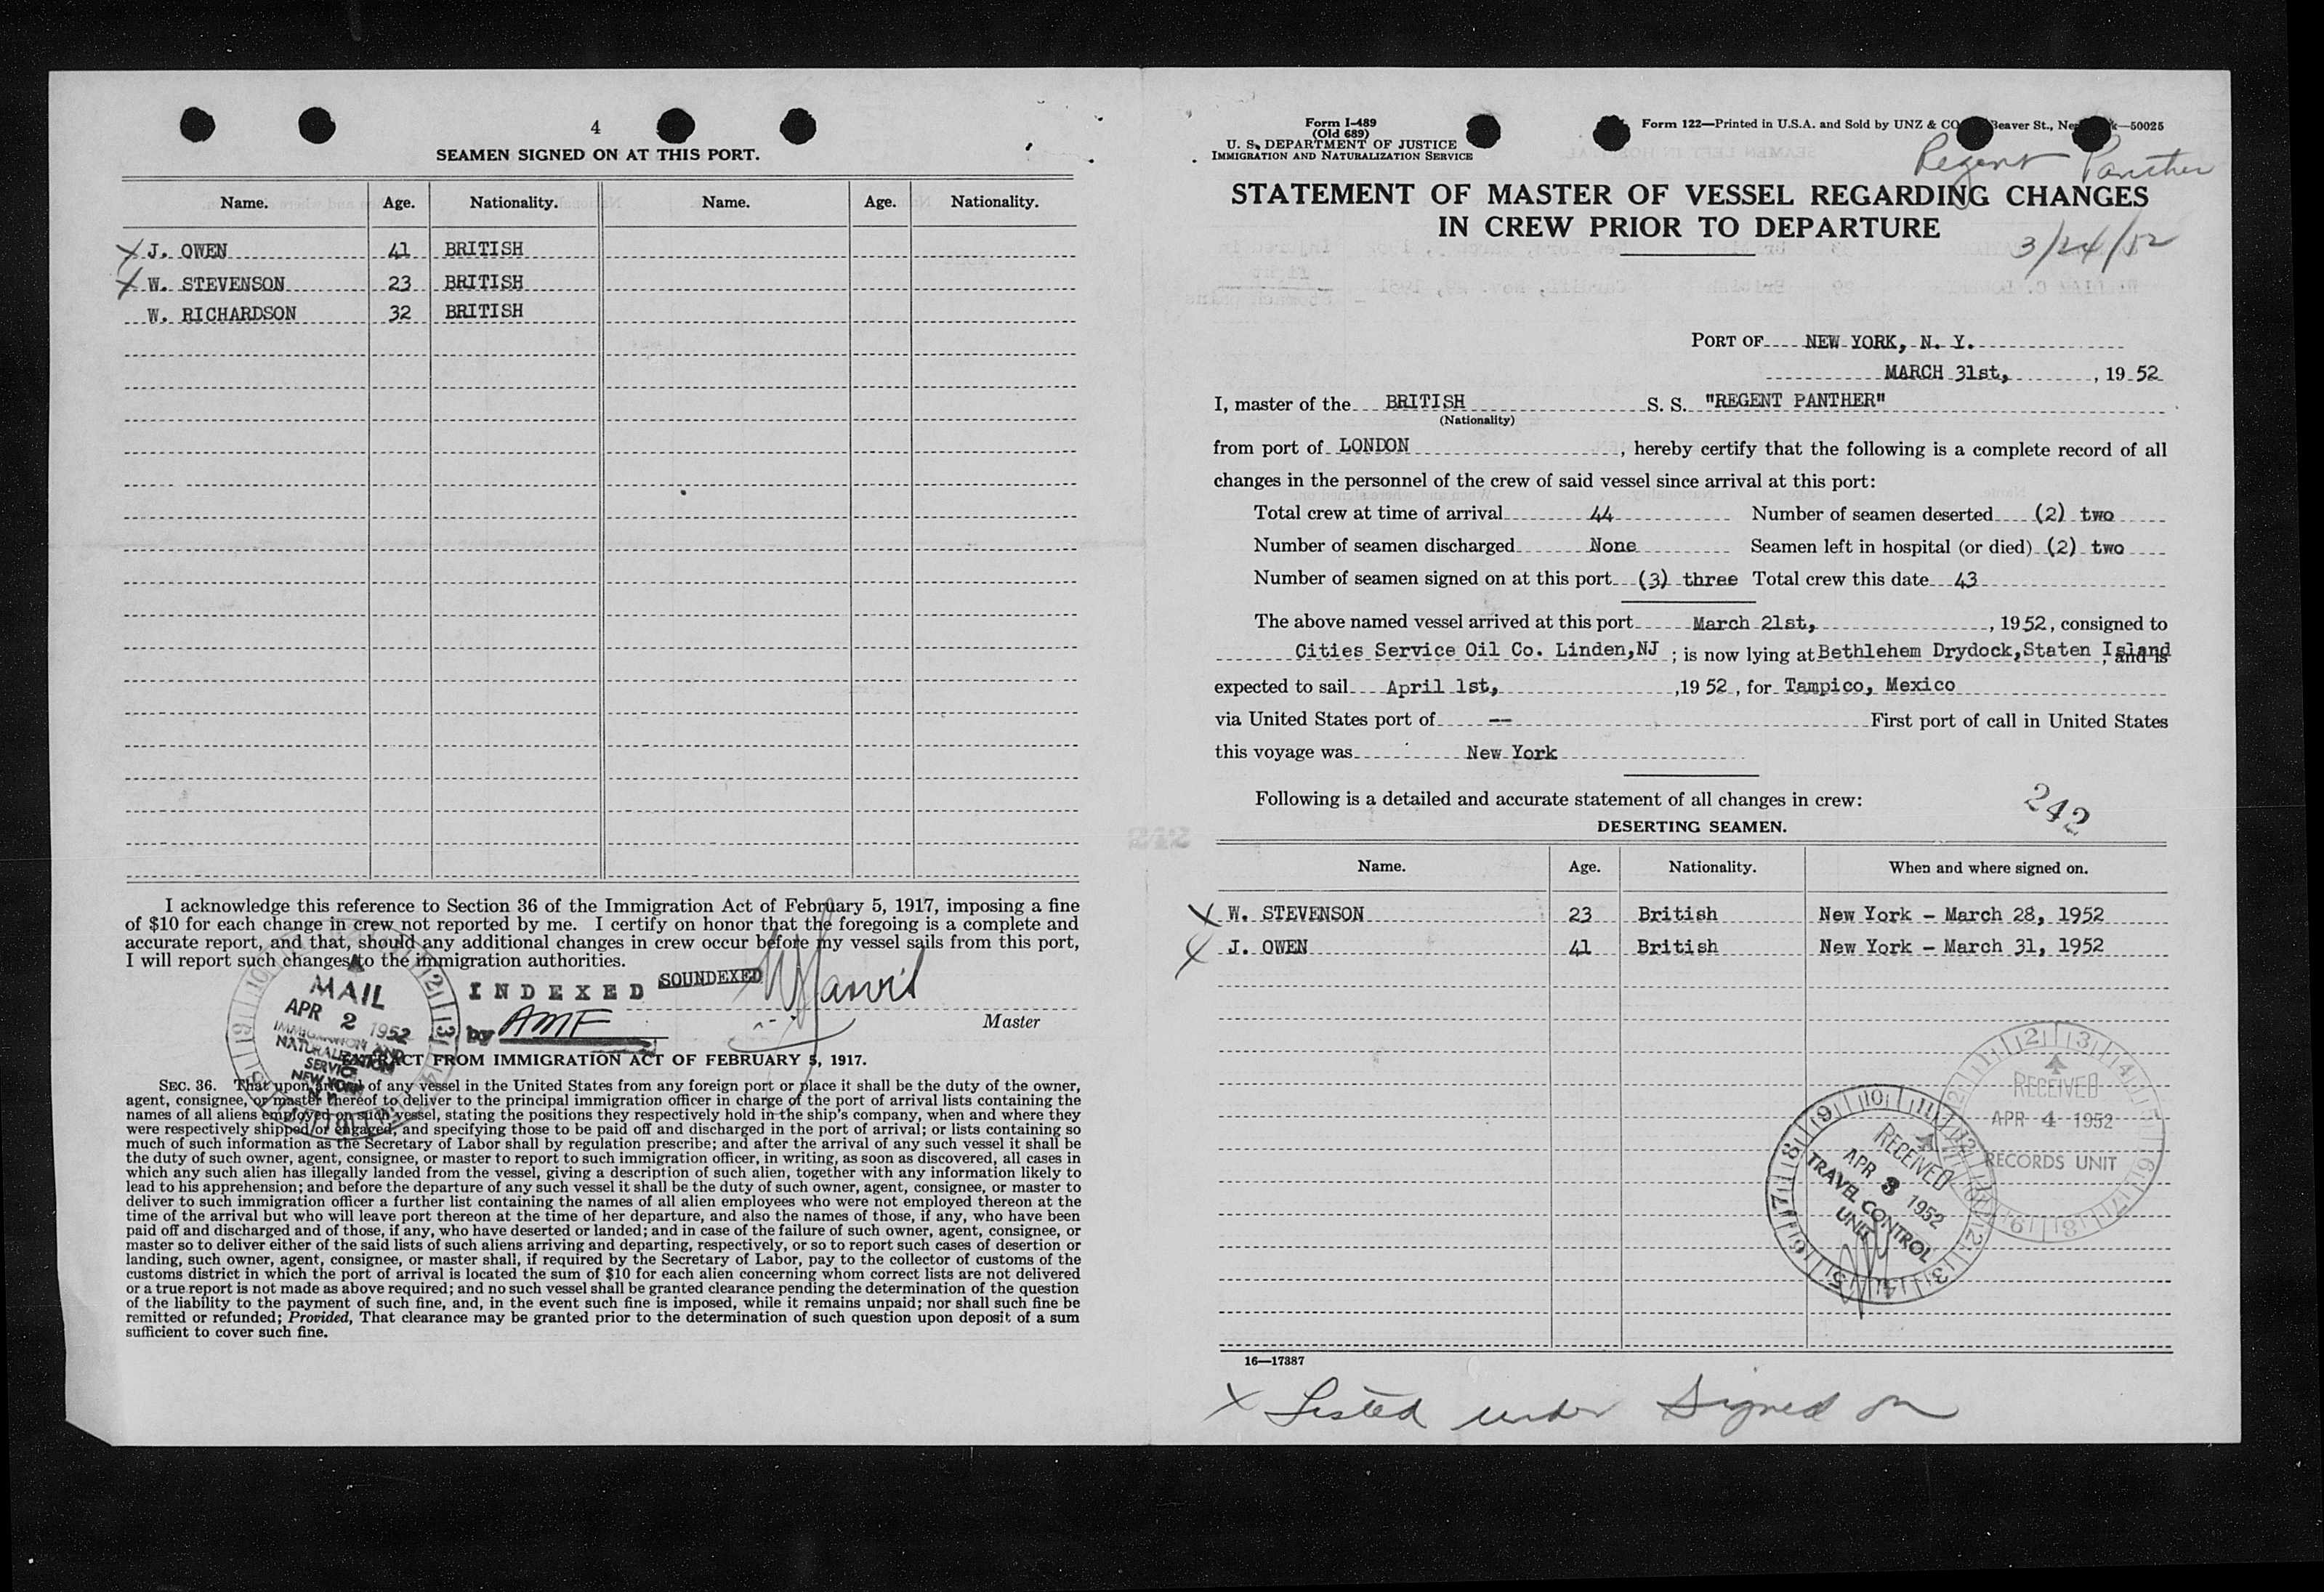 4
SEAMEN SIGNED ON AT THIS PORT.
Name. Age. Nationality. Name. Age. Nationality.
X J. OWEN 41 BRITISH
X W. STEVENSON 23 BRITISH
W. RICHARDSON 32 BRITISH
I acknowledge this reference to Section 36 of the Immigration Act of February 5, 1917, imposing a fine
of $10 for each change in crew not reported by me. I certify on honor that the foregoing is a complete and
accurate report, and that, should any additional changes in crew occur before my vessel sails from this port,
I will report such changes to the immigration authorities.
MAIL
APR 2 1952
IMMIGRATION AND
NATURALIZATION
SERVICE
NEW YORK
INDEXED
SOUNDEXED
by AMF
Master
EXTRACT FROM IMMIGRATION ACT OF FEBRUARY 5, 1917.
SEC. 36. That upon arrival of any vessel in the United States from any foreign port or place it shall be the duty of the owner,
agent, consignee, or master thereof to deliver to the principal immigration officer in charge of the port of arrival lists containing the
names of all aliens employed on such vessel, stating the positions they respectively hold in the ship's company, when and where they
were respectively shipped or engaged, and specifying those to be paid off and discharged in the port of arrival; or lists containing so
much of such information as the Secretary of Labor shall by regulation prescribe; and after the arrival of any such vessel it shall be
the duty of such owner, agent, consignee, or master to report to such immigration officer, in writing, as soon as discovered, all cases in
which any such alien has illegally landed from the vessel, giving a description of such alien, together with any information likely to
lead to his apprehension; and before the departure of any such vessel it shall be the duty of such owner, agent, consignee, or master to
deliver to such immigration officer a further list containing the names of all alien employees who were not employed thereon at the
time of the arrival but who will leave port thereon at the time of her departure, and also the names of those, if any, who have been
paid off and discharged and of those, if any, who have deserted or landed; and in case of the failure of such owner, agent, consignee, or
master so to deliver either of the said lists of such aliens arriving and departing, respectively, or so to report such cases of desertion or
landing, such owner, agent, consignee, or master shall, if required by the Secretary of Labor, pay to the collector of customs of the
customs district in which the port of arrival is located the sum of $10 for each alien concerning whom correct lists are not delivered
or a true report is not made as above required; and no such vessel shall be granted clearance pending the determination of the question
of the liability to the payment of such fine, and, in the event such fine is imposed, while it remains unpaid; nor shall such fine be
remitted or refunded; Provided, That clearance may be granted prior to the determination of such question upon deposit of a sum
sufficient to cover such fine.
Form I-489
(Old 689)
U. S. DEPARTMENT OF JUSTICE
IMMIGRATION AND NATURALIZATION SERVICE
Form 122—Printed in U.S.A. and Sold by UNZ & CO Beaver St., —50025
Regent Panther
STATEMENT OF MASTER OF VESSEL REGARDING CHANGES
IN CREW PRIOR TO DEPARTURE
3/24/52
PORT OF NEW YORK, N. Y.
MARCH 31st, , 19 52
I, master of the BRITISH S. S. "REGENT PANTHER"
(Nationality)
from port of LONDON , hereby certify that the following is a complete record of all
changes in the personnel of the crew of said vessel since arrival at this port:
Total crew at time of arrival 44 Number of seamen deserted (2) two
Number of seamen discharged None Seamen left in hospital (or died) (2) two
Number of seamen signed on at this port (3) three Total crew this date 43
The above named vessel arrived at this port March 21st, , 1952, consigned to
Cities Service Oil Co. Linden,NJ ; is now lying at Bethlehem Drydock,Staten Island , and is
expected to sail April 1st, ,19 52, for Tampico, Mexico
via United States port of -- First port of call in United States
this voyage was New York
Following is a detailed and accurate statement of all changes in crew:
242
DESERTING SEAMEN.
Name. Age. Nationality. When and where signed on.
X W. STEVENSON 23 British New York - March 28, 1952
X J. OWEN 41 British New York - March 31, 1952
RECEIVED
APR 4 1952
RECORDS UNIT
RECEIVED
APR 3 1952
TRAVEL CONTROL
UNIT
16—17387
X Listed under signed on